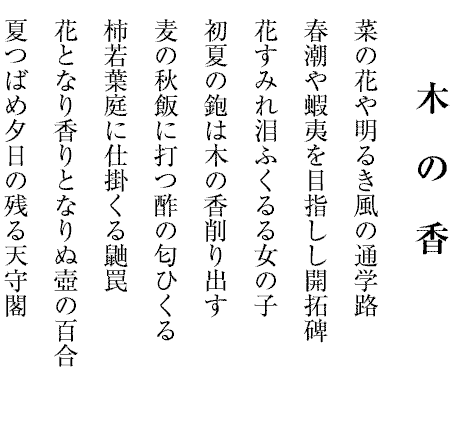 木の香
菜の花や明るき風の通学路
春潮や蝦夷を目指しし開拓碑
花すみれ泪ふくるる女の子
初夏の鉋は木の香削り出す
麦の秋飯に打つ酢の匂ひくる
柿若葉庭に仕掛くる鼬罠
花となり香りとなりぬ壺の百合
夏つばめ夕日の残る天守閣